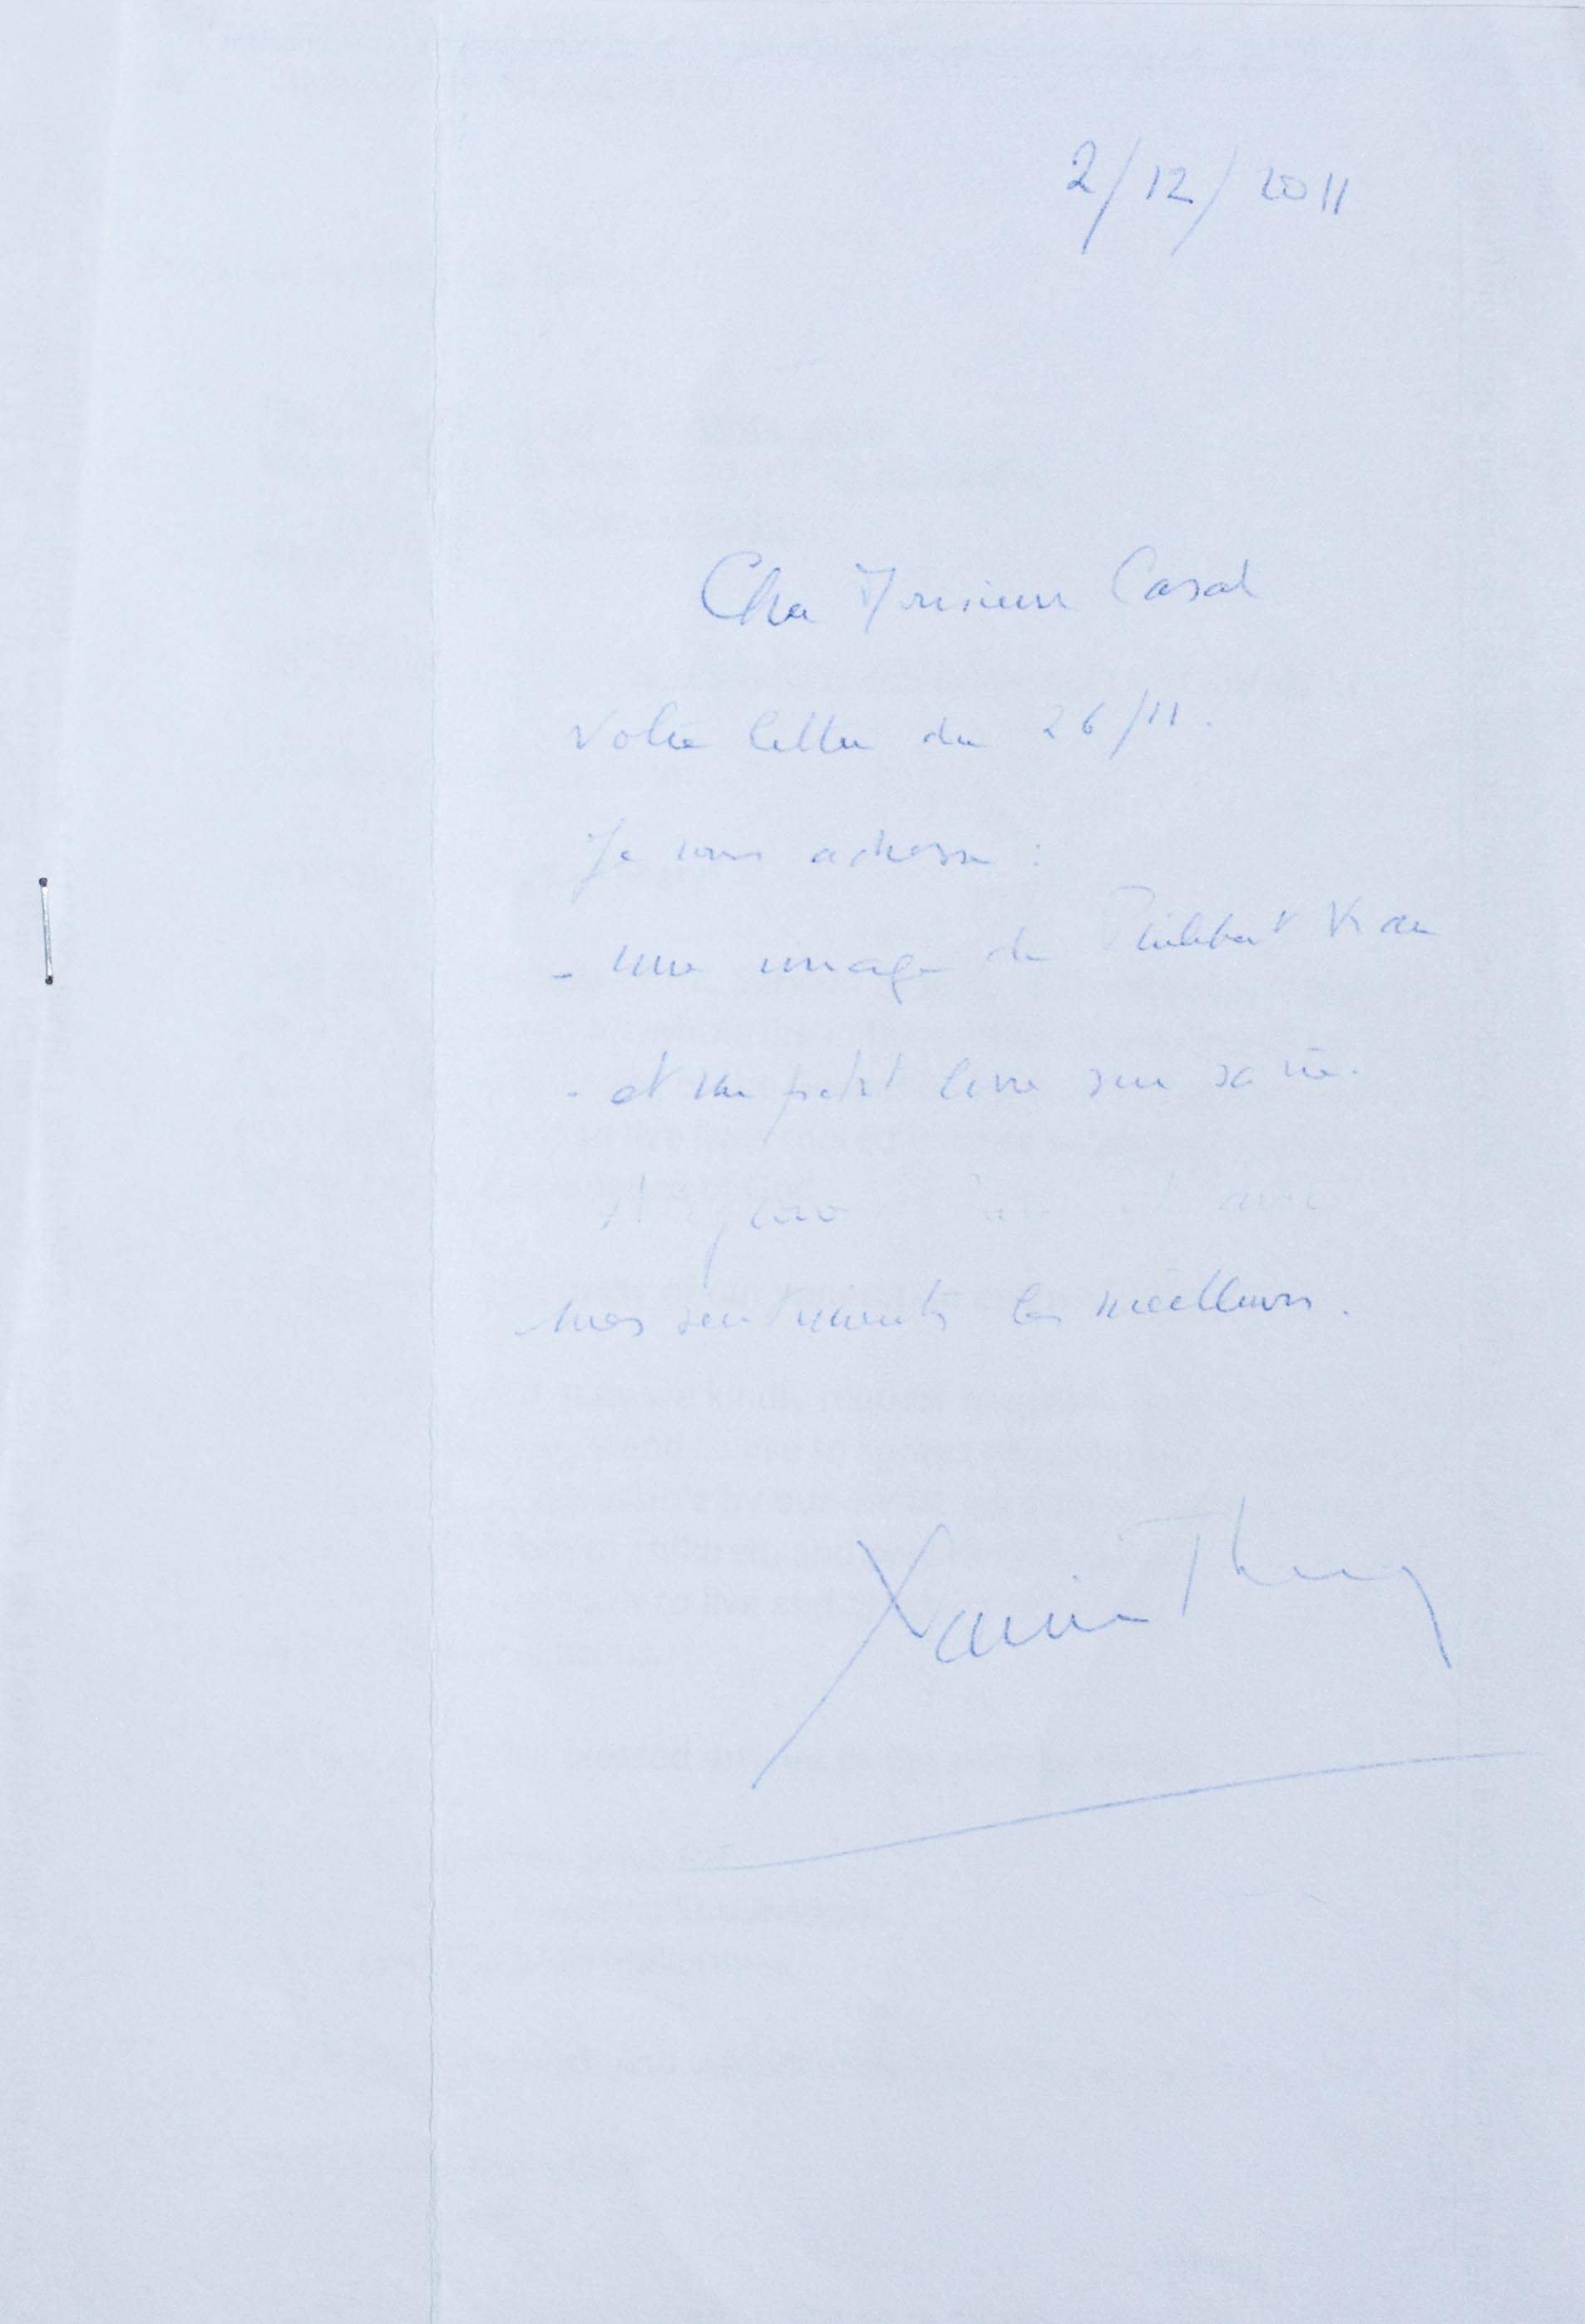 2/12/2011
Cher Monsieur Casal
Votre lettre du 26/11.
Je vous adresse :
- une image de Philibert Vrau
- et un petit livre sur sa vie.
mes sentiments les meilleurs.
Xavier Thery